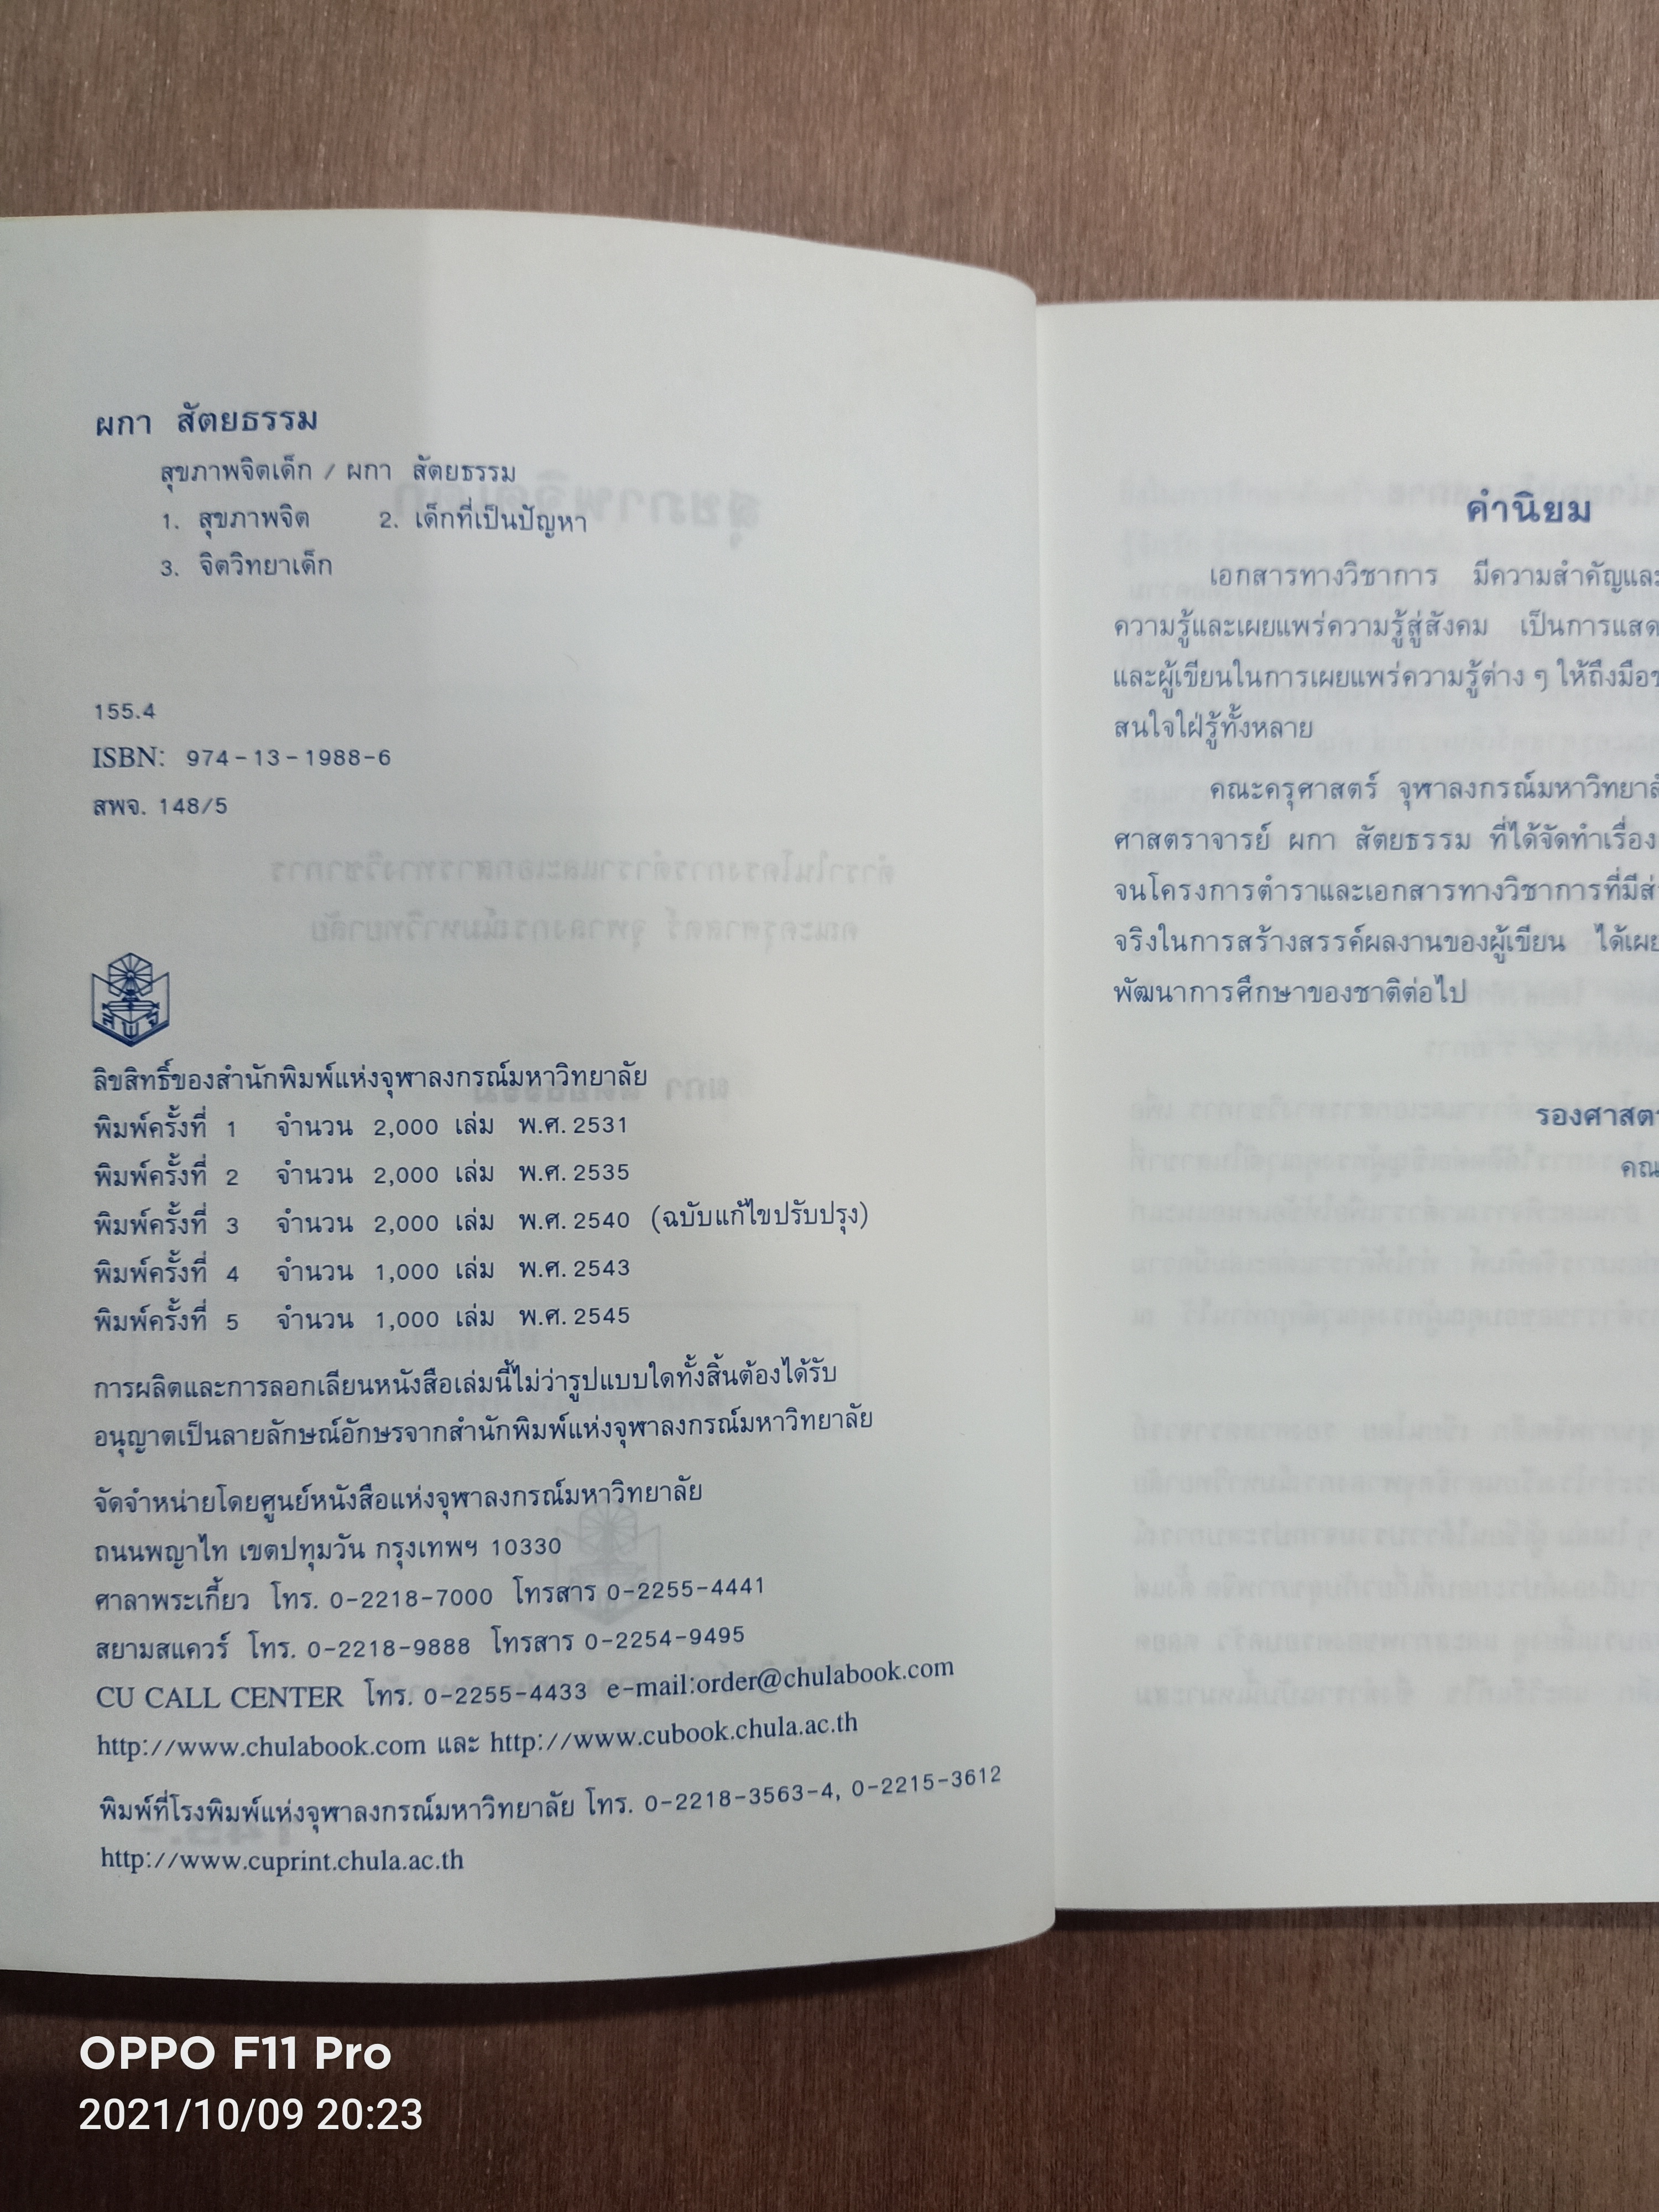 ผกา สัตยธรรม
สุขภาพจิตเด็ก / ผกา สัตยธรรม
1. สุขภาพจิต 2. เด็กที่เป็นปัญหา
3. จิตวิทยาเด็ก
155.4
ISBN: 974-13-1988-6
สพจ. 148/5
สพจ
ลิขสิทธิ์ของสำนักพิมพ์แห่งจุฬาลงกรณ์มหาวิทยาลัย
พิมพ์ครั้งที่ 1 จำนวน 2,000 เล่ม พ.ศ. 2531
พิมพ์ครั้งที่ 2 จำนวน 2,000 เล่ม พ.ศ. 2535
พิมพ์ครั้งที่ 3 จำนวน 2,000 เล่ม พ.ศ. 2540 (ฉบับแก้ไขปรับปรุง)
พิมพ์ครั้งที่ 4 จำนวน 1,000 เล่ม พ.ศ. 2543
พิมพ์ครั้งที่ 5 จำนวน 1,000 เล่ม พ.ศ. 2545
การผลิตและการลอกเลียนหนังสือเล่มนี้ไม่ว่ารูปแบบใดทั้งสิ้นต้องได้รับ
อนุญาตเป็นลายลักษณ์อักษรจากสำนักพิมพ์แห่งจุฬาลงกรณ์มหาวิทยาลัย
จัดจำหน่ายโดยศูนย์หนังสือแห่งจุฬาลงกรณ์มหาวิทยาลัย
ถนนพญาไท เขตปทุมวัน กรุงเทพฯ 10330
ศาลาพระเกี้ยว โทร. 0-2218-7000 โทรสาร 0-2255-4441
สยามสแควร์ โทร. 0-2218-9888 โทรสาร 0-2254-9495
CU CALL CENTER โทร. 0-2255-4433 e-mail:order@chulabook.com
http://www.chulabook.com และ http://www.cubook.chula.ac.th
พิมพ์ที่โรงพิมพ์แห่งจุฬาลงกรณ์มหาวิทยาลัย โทร. 0-2218-3563-4, 0-2215-3612
http://www.cuprint.chula.ac.th
คำนิยม
เอกสารทางวิชาการ มีความสำคัญและ
ความรู้และเผยแพร่ความรู้สู่สังคม เป็นการแสด
และผู้เขียนในการเผยแพร่ความรู้ต่าง ๆ ให้ถึงมือข
สนใจใฝ่รู้ทั้งหลาย
คณะครุศาสตร์ จุฬาลงกรณ์มหาวิทยาลั
ศาสตราจารย์ ผกา สัตยธรรม ที่ได้จัดทำเรื่อง
จนโครงการตำราและเอกสารทางวิชาการที่มีส่
จริงในการสร้างสรรค์ผลงานของผู้เขียน ได้เผย
พัฒนาการศึกษาของชาติต่อไป
รองศาสตร
คณ
OPPO F11 Pro
2021/10/09 20:23